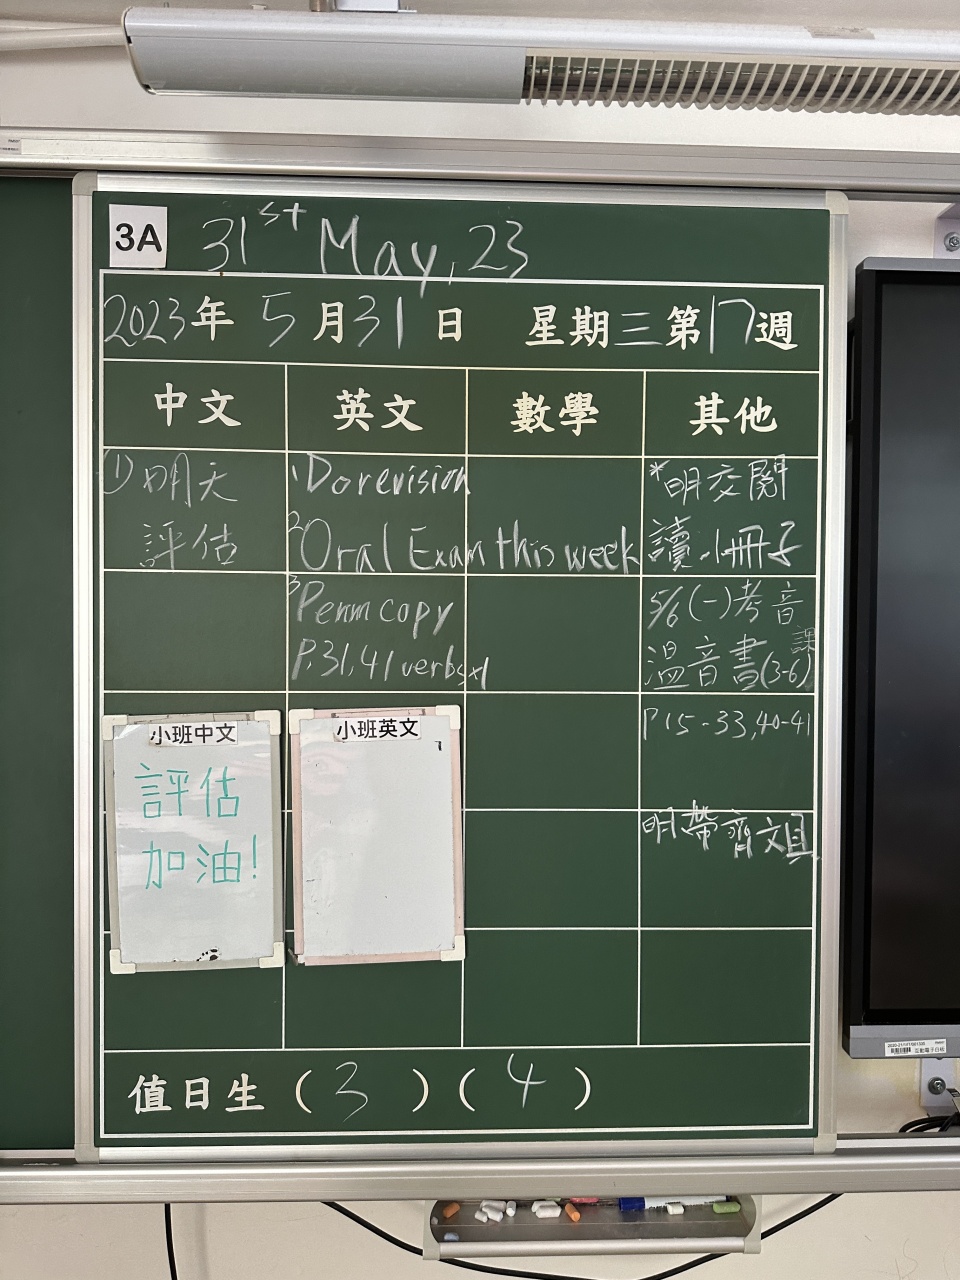 3A
31st May, 23
2023年 5月31日 星期三第17週
中文
英文
數學
其他
①明天
評估
1Do revision
2Oral Exam this week
3Penm copy
P.31,41 verbsx1
*明交閱
讀小冊子
5/6(一)考音
溫音書課(3-6)
P15-33,40-41
明帶齊文具
小班中文
評估
加油!
小班英文
值日生(3)(4)